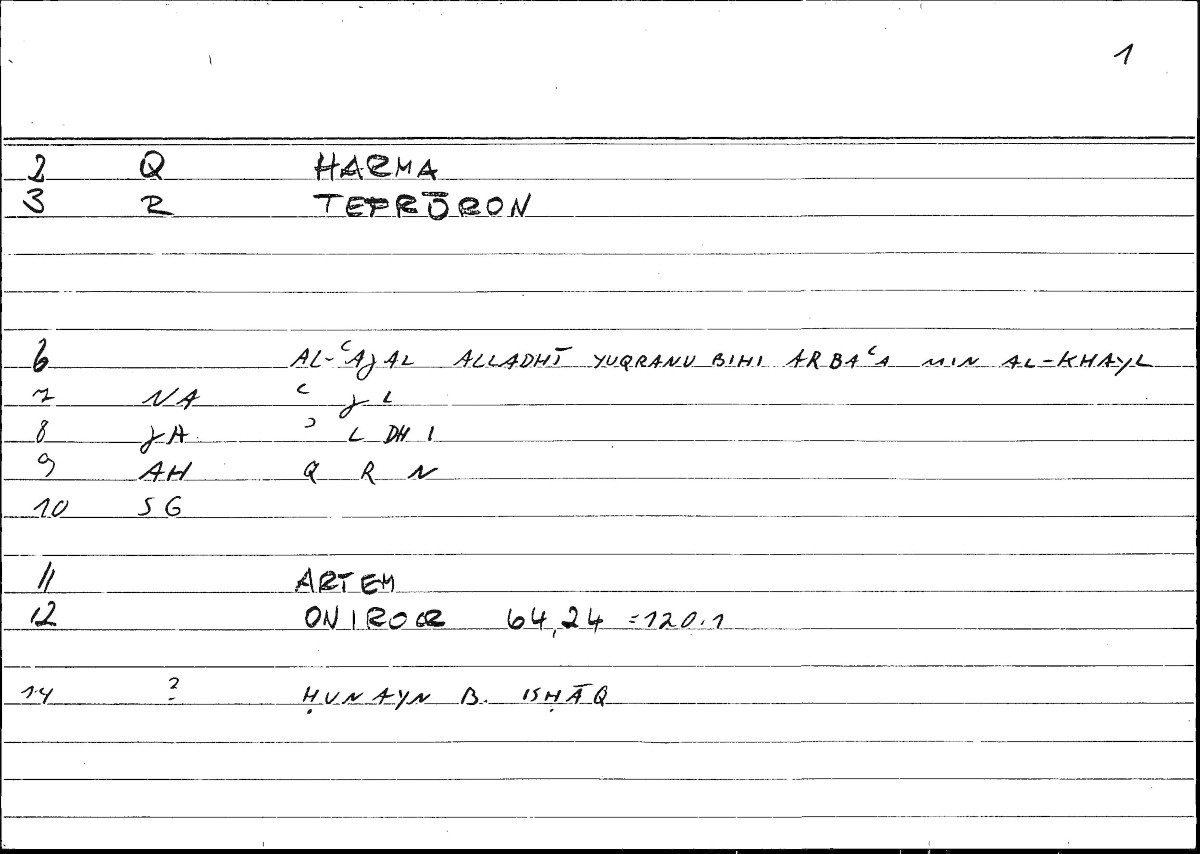 1
2 Q HARMA
3 R TEPRŌRON
6 AL-ʿAJAL ALLADHĪ YUQRANU BIHI ARBAʿA MIN AL-KHAYL
7 NA ʿ J L
8 JA ʾ L DH I
9 AH Q R N
10 SG
11 ARTEM
12 ONIROCR 64,24 =120.1
14 ? ḤUNAYN B. ISḤĀQ